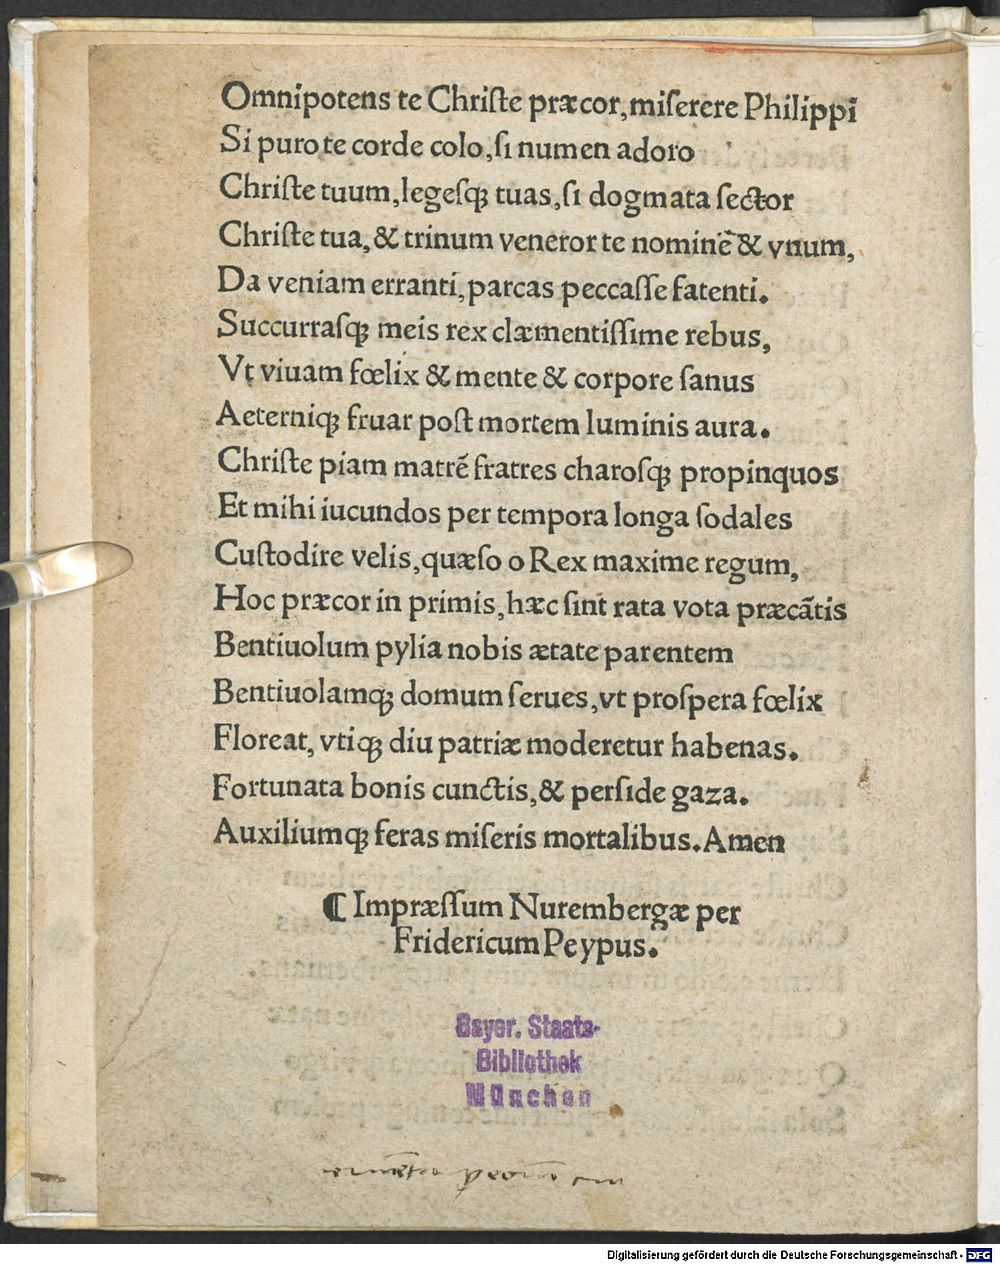 Omnipotens te Chriſte præcor, miſerere Philippi
Si puro te corde colo, ſi numen adoro
Chriſte tuum, legeſq; tuas, ſi dogmata ſector
Chriſte tua, & trinum veneror te nominē & vnum,
Da veniam erranti, parcas peccaſſe fatenti.
Succurraſq; meis rex clæmentiſſime rebus,
Vt viuam fœlix & mente & corpore ſanus
Aeterniq; fruar poſt mortem luminis aura.
Chriſte piam matrē fratres charoſq; propinquos
Et mihi iucundos per tempora longa ſodales
Cuſtodire velis, quæſo o Rex maxime regum,
Hoc præcor in primis, hæc ſint rata vota præcātis
Bentiuolum pylia nobis ætate parentem
Bentiuolamq; domum ſerues, vt proſpera fœlix
Floreat, vtiq; diu patriæ moderetur habenas.
Fortunata bonis cunctis, & perſide gaza.
Auxiliumq; feras miſeris mortalibus. Amen
¶ Impræſſum Nurembergæ per
Fridericum Peypus.
Bayer. Staats-
Bibliothek
München
Digitalisierung gefördert durch die Deutsche Forschungsgemeinschaft - DFG